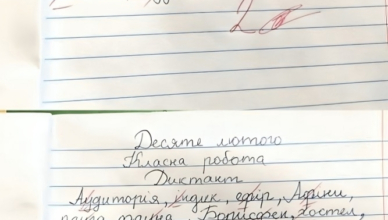 2
Десяте лютого
Класна робота
Диктант
Аудиторія, индик, ефір, Афини,
Борисфен, хостел,